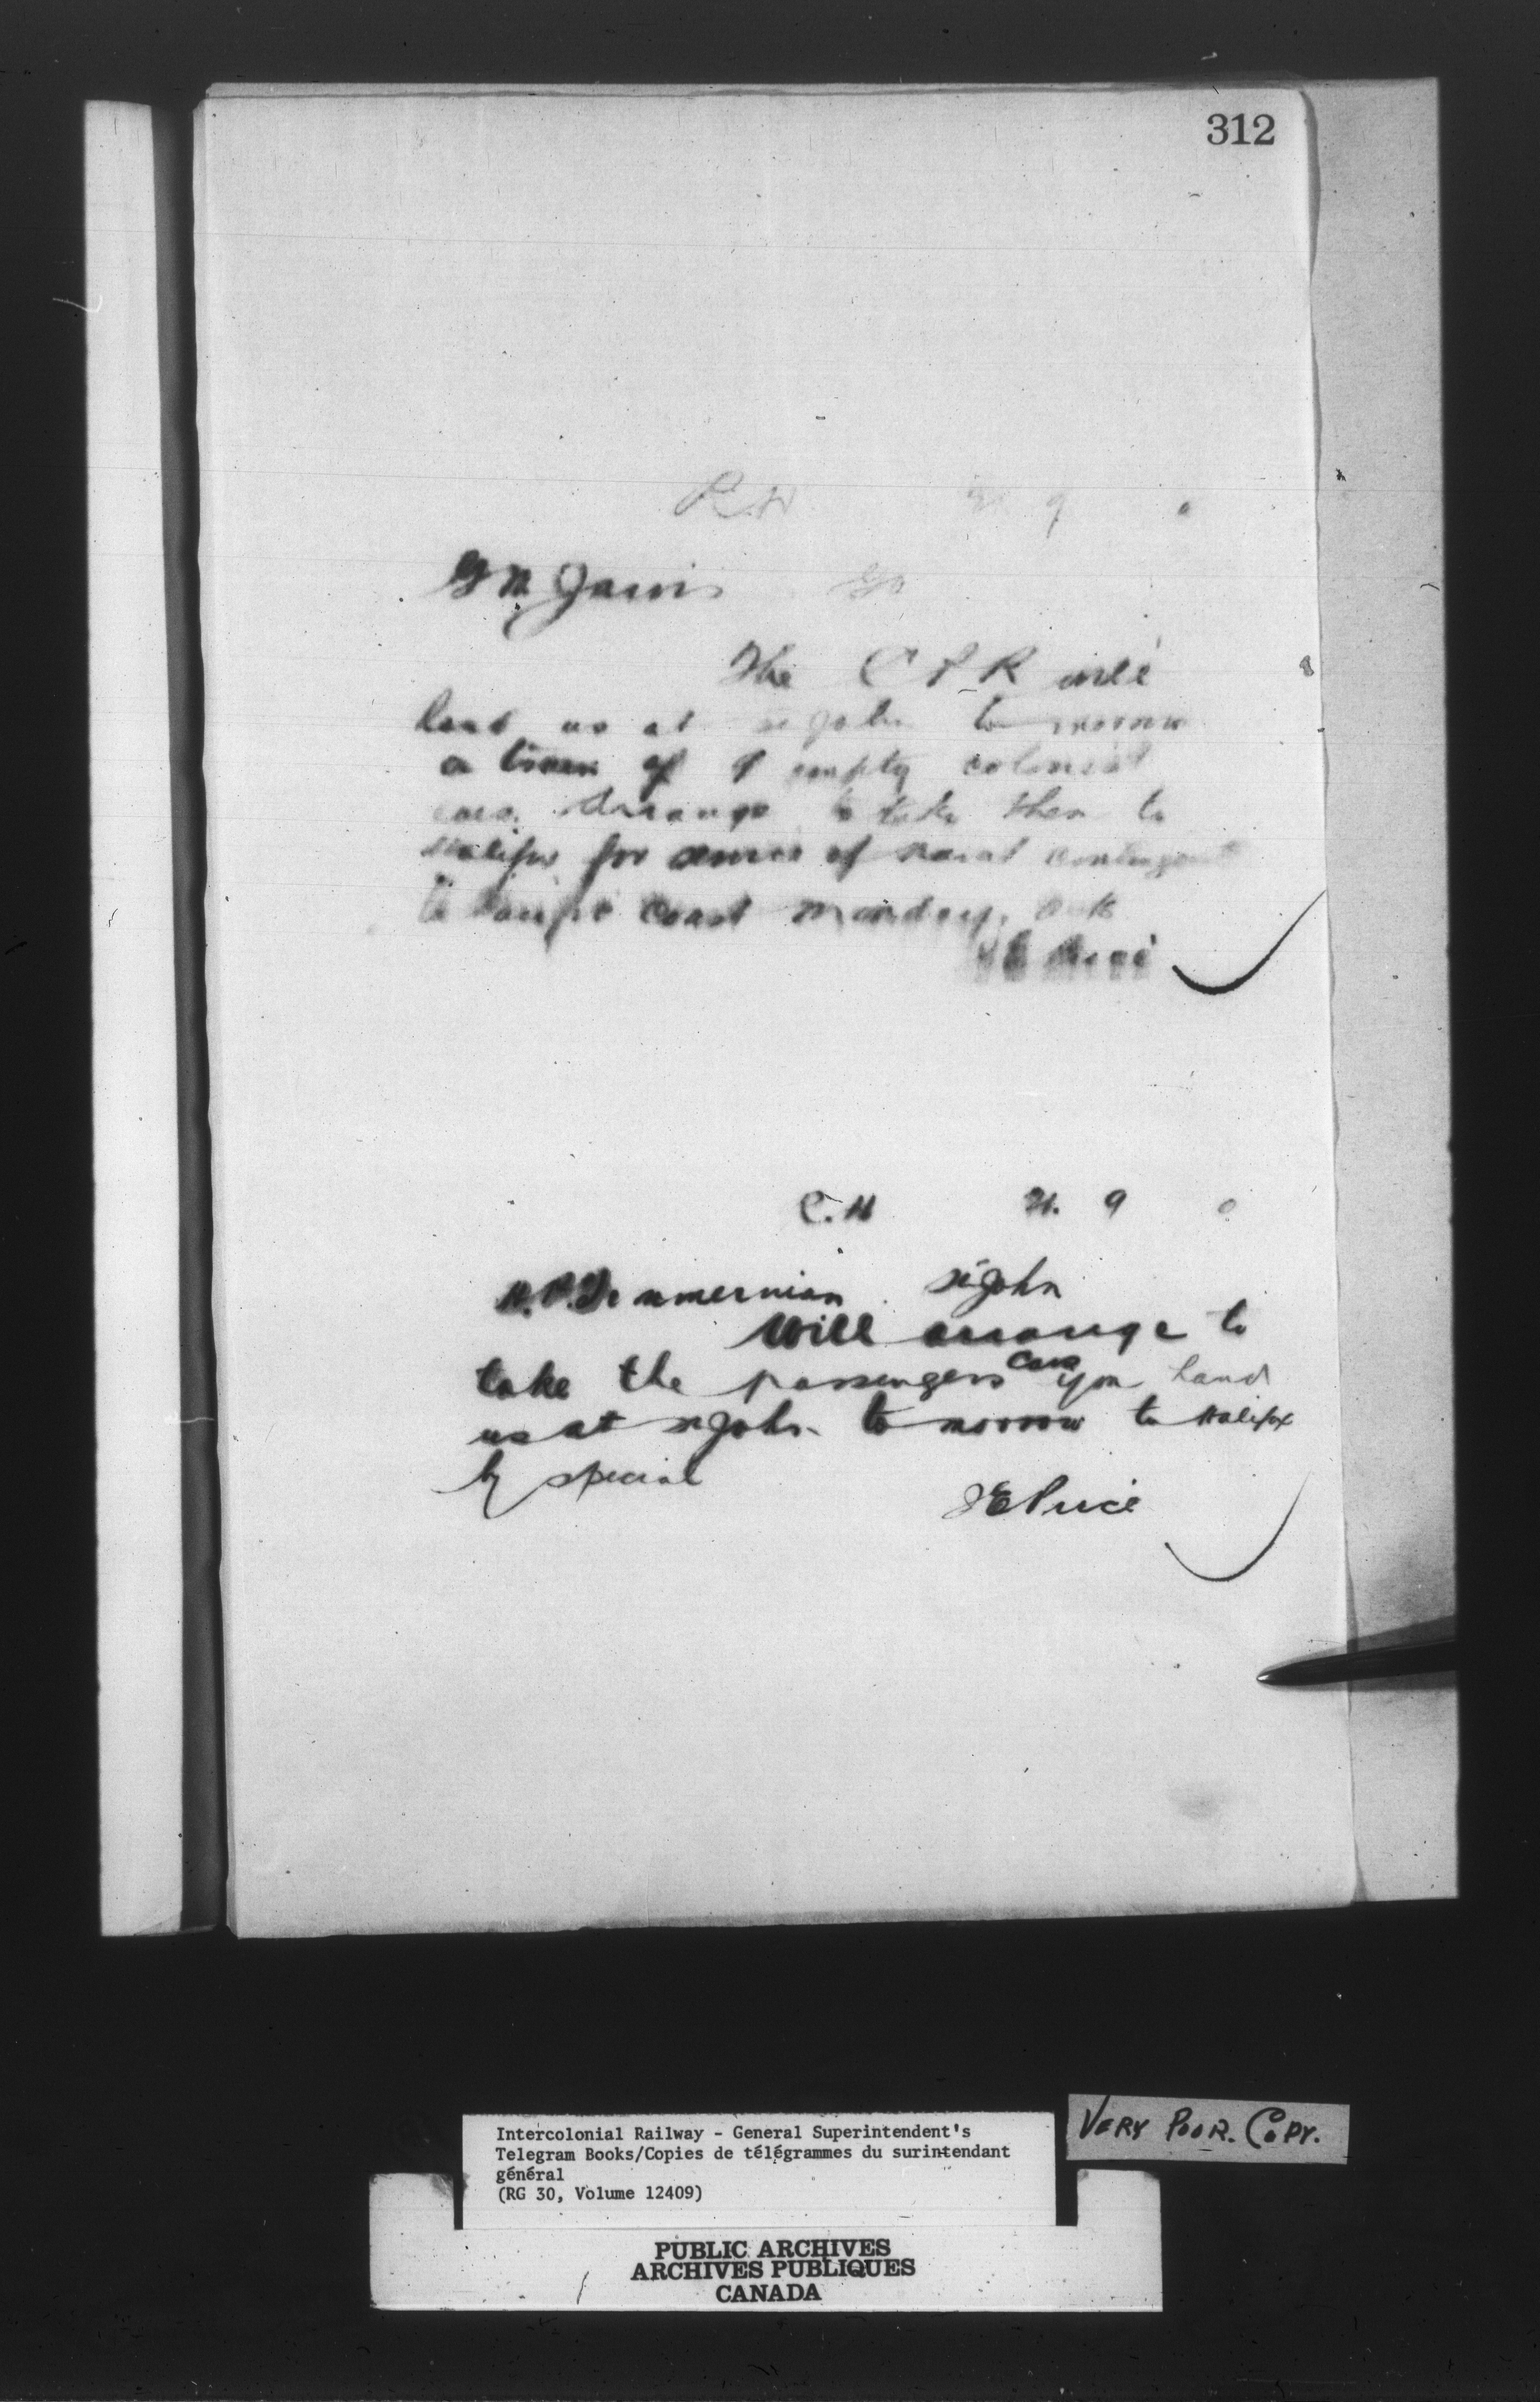 312
G M Jarvis
The C P R will
hand us at St John to morrow
a train of 9 empty colonist
cars. Arrange to take them to
Halifax for service of naval contingent
to Pacific Coast Monday. O K
J E Price
C. H H. 9
H. P. Timmerman St John
Will arrange to
take the passengers cars you hand
us at St John to morrow to Halifax
by special
J E Price
VERY POOR. COPY.
Intercolonial Railway - General Superintendent's
Telegram Books/Copies de télégrammes du surintendant
général
(RG 30, Volume 12409)
PUBLIC ARCHIVES
ARCHIVES PUBLIQUES
CANADA